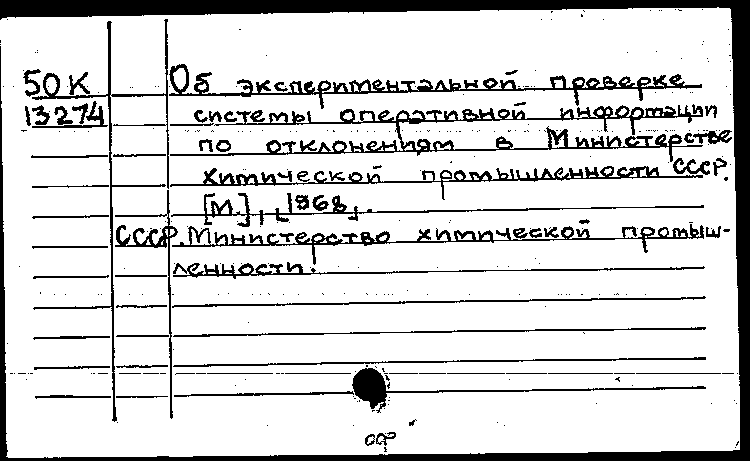 50К Об экспериментальной проверке
13274 системы оперативной информации
по отклонениям в Министерстве
химической промышленности СССР.
[М.], [1968].
СССР. Министерство химической промыш-
ленности.